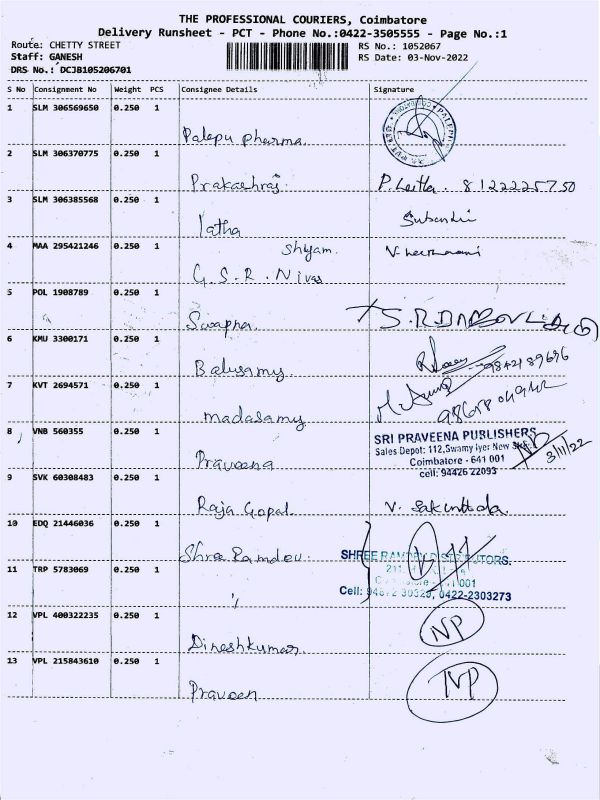 THE PROFESSIONAL COURIERS, Coimbatore
Delivery Runsheet - PCT - Phone No.:0422-3505555 - Page No.:1
Route: CHETTY STREET
Staff: GANESH
DRS No.: DCJB105206701
RS No.: 1052067
RS Date: 03-Nov-2022
S No Consignment No Weight PCS Consignee Details Signature
1 SLM 306569650 0.250 1
Palepu pharma
2 SLM 306370775 0.250 1
Prakashraj P. Leitha. 8122225750
3 SLM 306385568 0.250 1
latha
4 MAA 295421246 0.250 1 Shyam.
G.S.R. Nivas
5 POL 1908789 0.250 1
Swapna.
6 KMU 3300171 0.250 1
Balusamy 9842189696
7 KVT 2694571 0.250 1
madasamy
8 VNB 560355 0.250 1
SRI PRAVEENA PUBLISHERS
Sales Depot: 112, Swamy Iyer New
Coimbatore - 641 001
cell: 94426 22093
3/11/22
Praveena
9 SVK 60308483 0.250 1
Raja Gopal V. Sakunthala
10 EDQ 21446036 0.250 1
Shree Ramdev.
SHREE RAMDEV DISTRIBUTORS.
11 TRP 5783069 0.250 1
001
Cell: 0422-2303273
"
12 VPL 400322235 0.250 1
NP
Dineshkumar
13 VPL 215843610 0.250 1
NP
Praveen